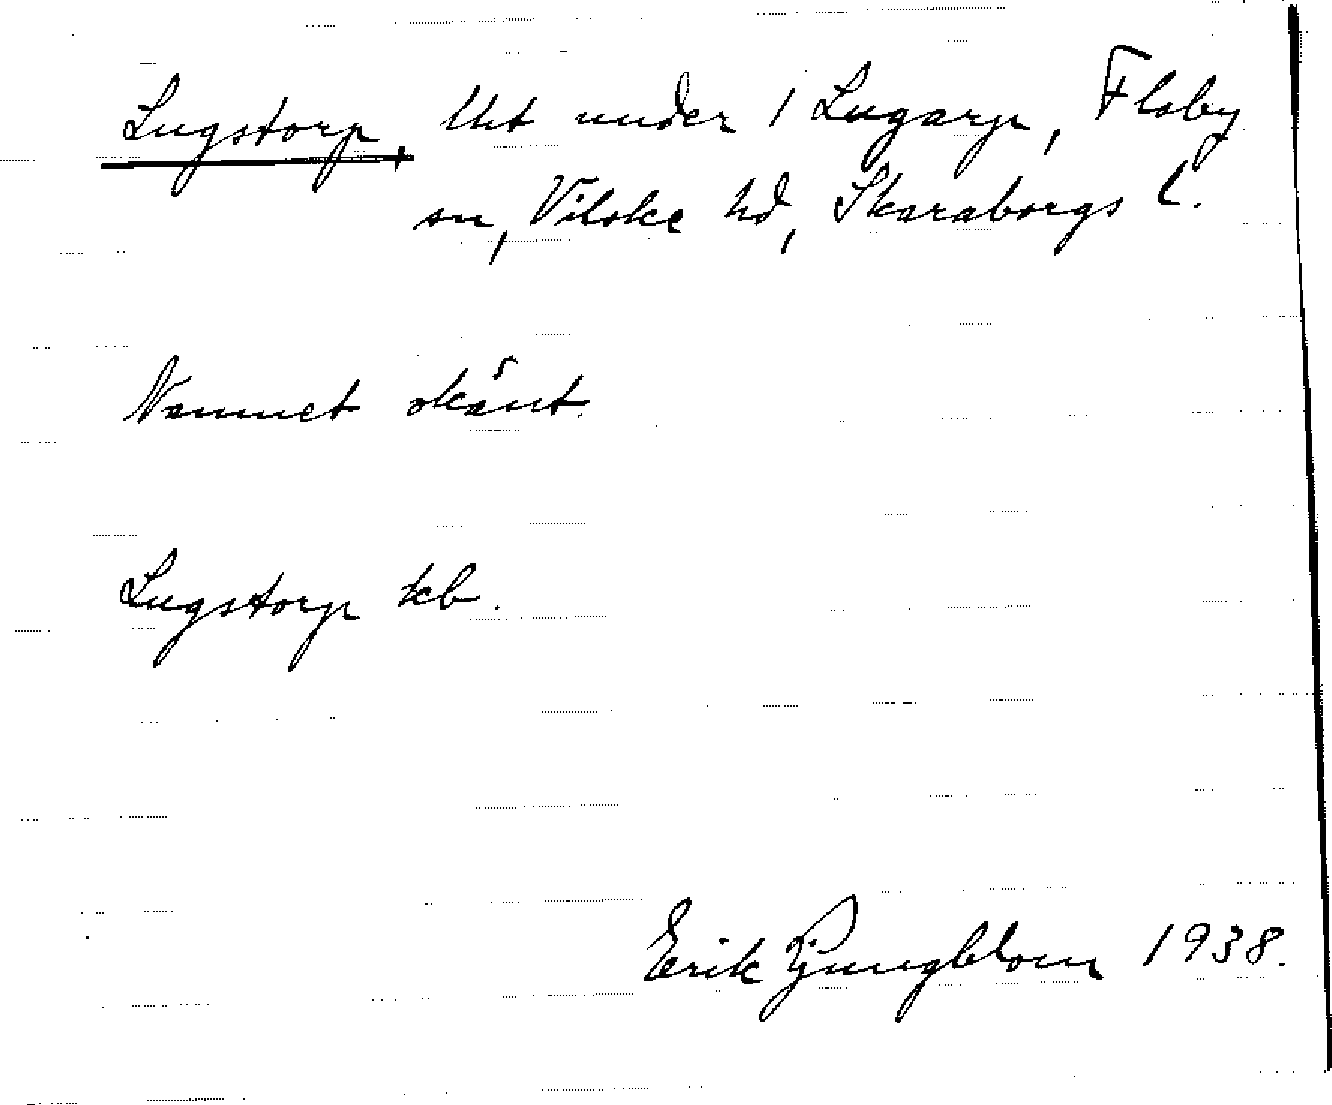 Lugstorp Utt under 1 Lugarp, Floby
sn, Vilske hd, Skaraborgs l.
Namnet okänt.
Lugstorp kb.
Erik Ljungblom 1938.